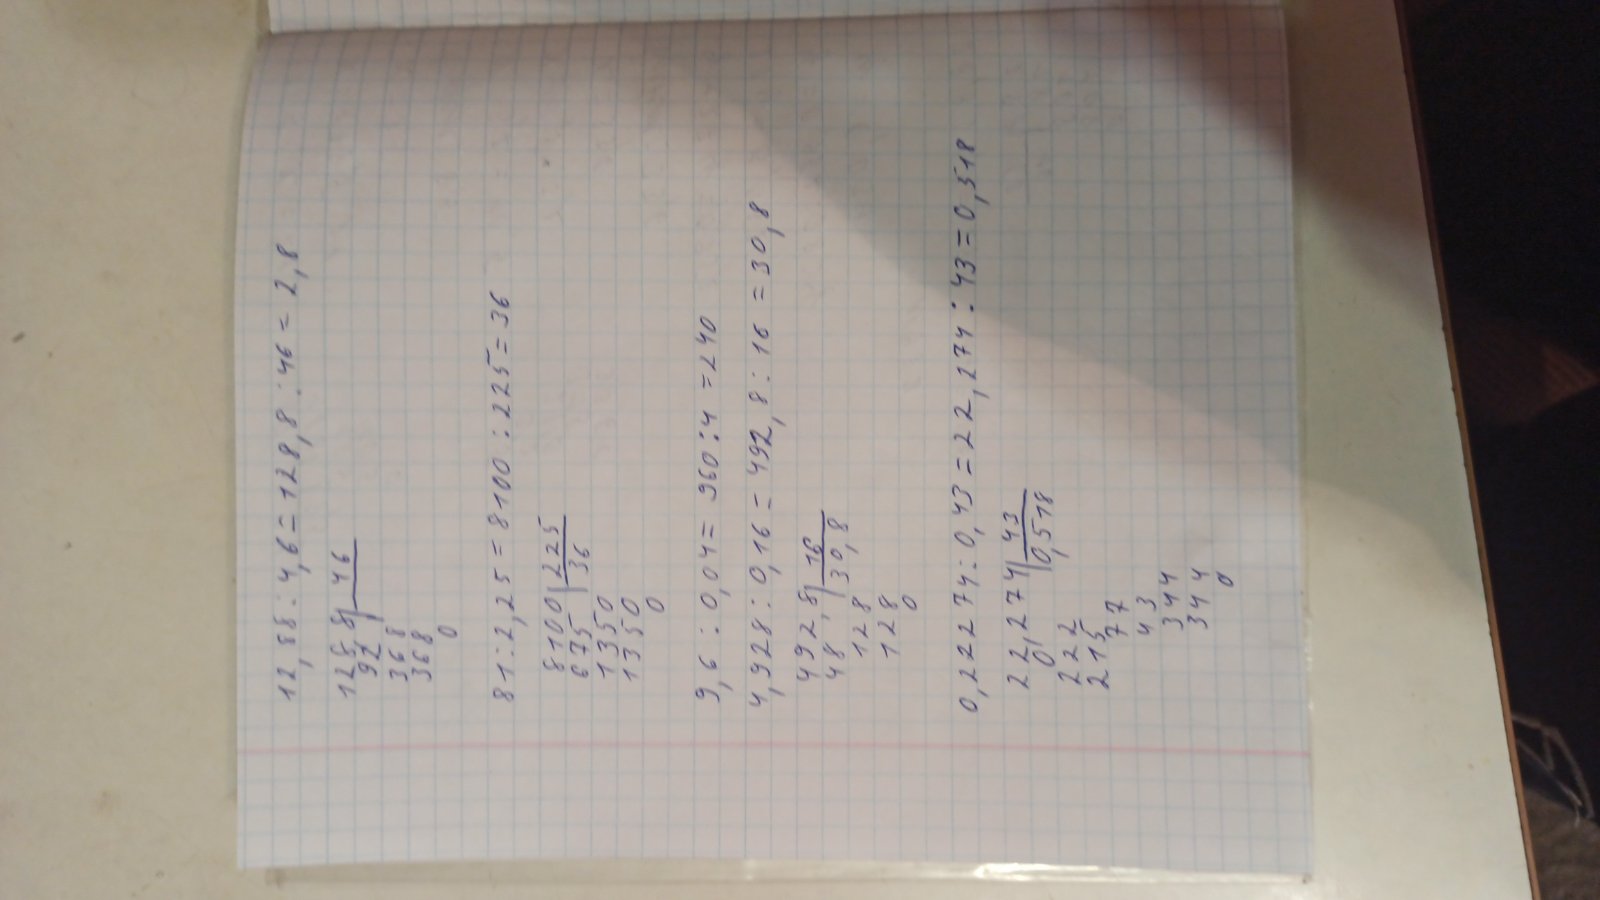 12,88:4,6=128,8:46=2,8
128,8|46
92
368
368
0
81:2,25=8100:225=36
8100|225
675 36
1350
1350
0
9,6:0,04=960:4=240
4,928:0,16=492,8:16=30,8
492,8|16
48 30,8
128
128
0
0,22274:0,43=22,274:43=0,518
22,274|43
0 0,518
222
215
77
43
344
344
0